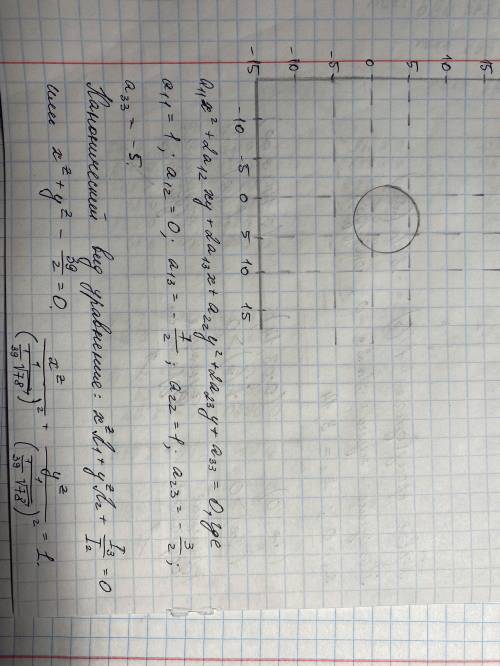 15
10
5
0
-5
-10
-15
-10 -5 0 5 10 15
a₁₁x² + 2a₁₂xy + 2a₁₃x + a₂₂y² + 2a₂₃y + a₃₃ = 0, где
a₁₁ = 1; a₁₂ = 0; a₁₃ = -7/2; a₂₂ = 1; a₂₃ = -3/2;
a₃₃ = -5.
Канонический вид уравнение: x²λ₁ + y²λ₂ + I₃/I₂ = 0
или x² + y² - 39/2 = 0.
x²/(1/(1/39 √78))² + y²/(1/(1/39 √78))² = 1.